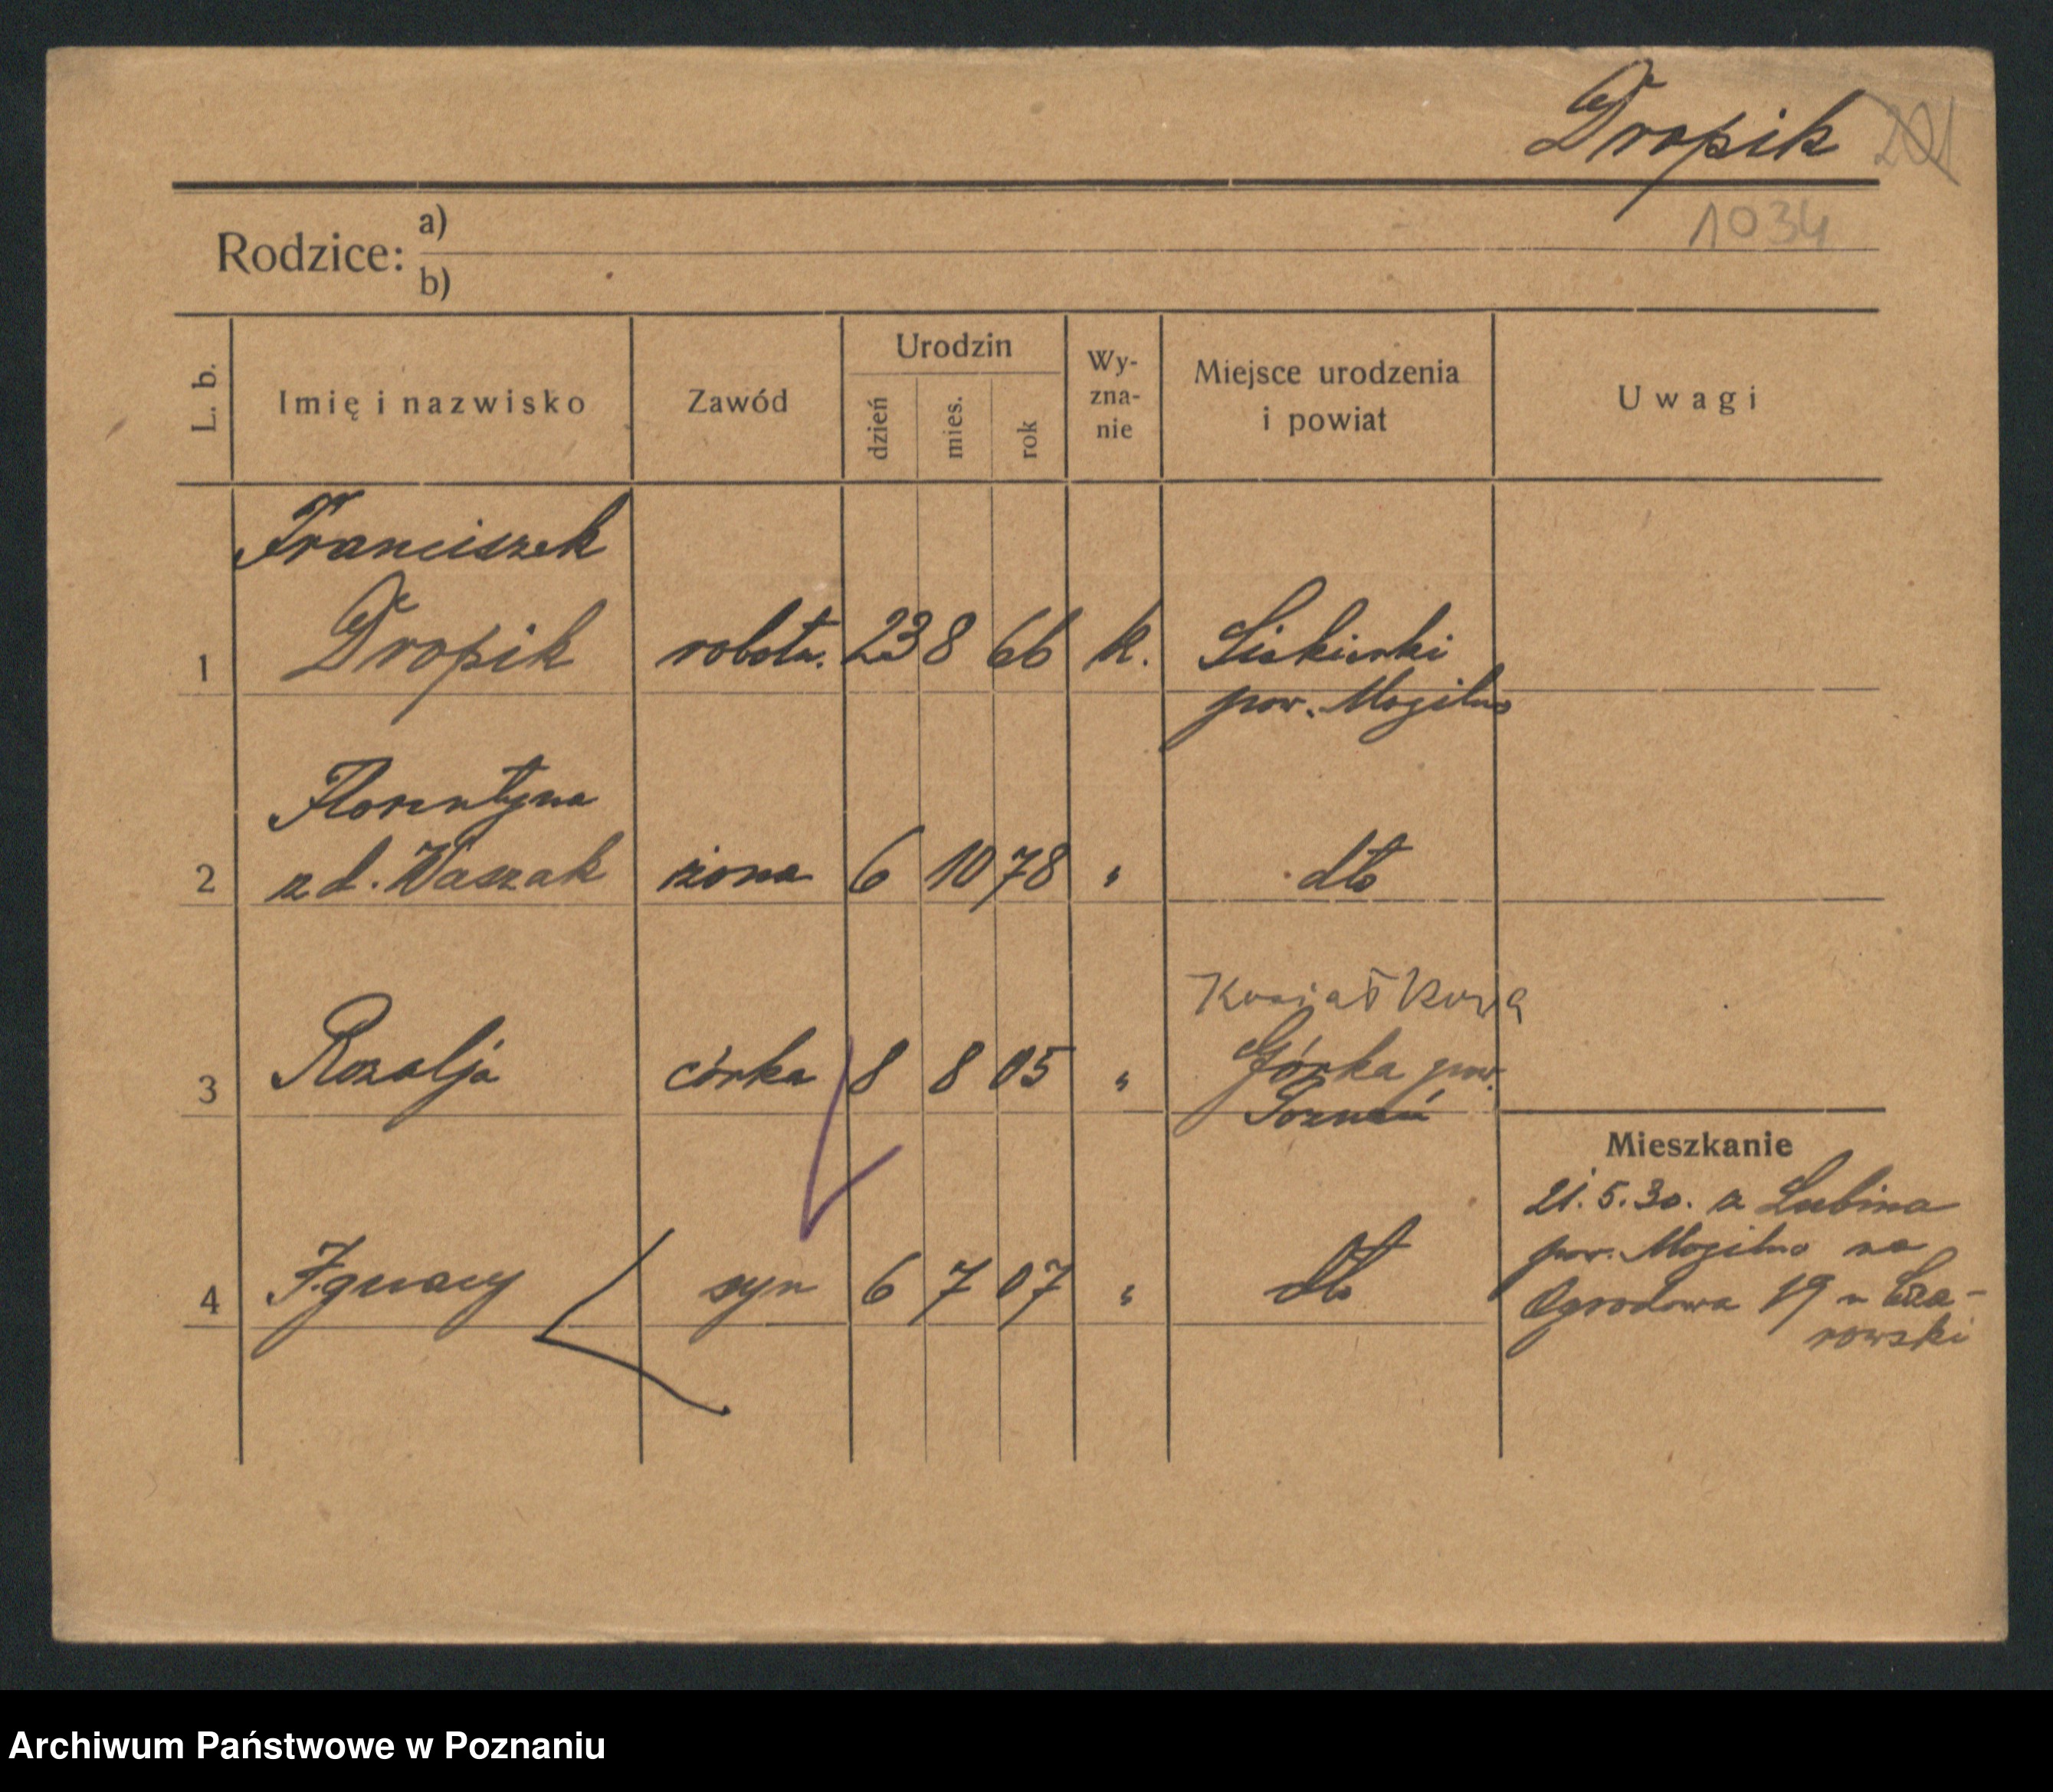 Dropik 201
1034
Rodzice: a)
b)
L. b. Imię i nazwisko Zawód Urodzin dzień mies. rok Wy-zna-nie Miejsce urodzenia i powiat Uwagi
Franciszek
1 Dropik robotn. 23 8 66 k.
pow. Mogilno
Florentyna
2 z d. Waszak żona 6 10 78 " dto
3 Rozalja córka 8 8 05 " Górka pow.
Poznań
Mieszkanie
21.5.30. z Lubina
pow. Mogilno na
4 Ignacy syn 6 7 07 " dto Ogrodowa 19 u Cza-
rowski
Archiwum Państwowe w Poznaniu